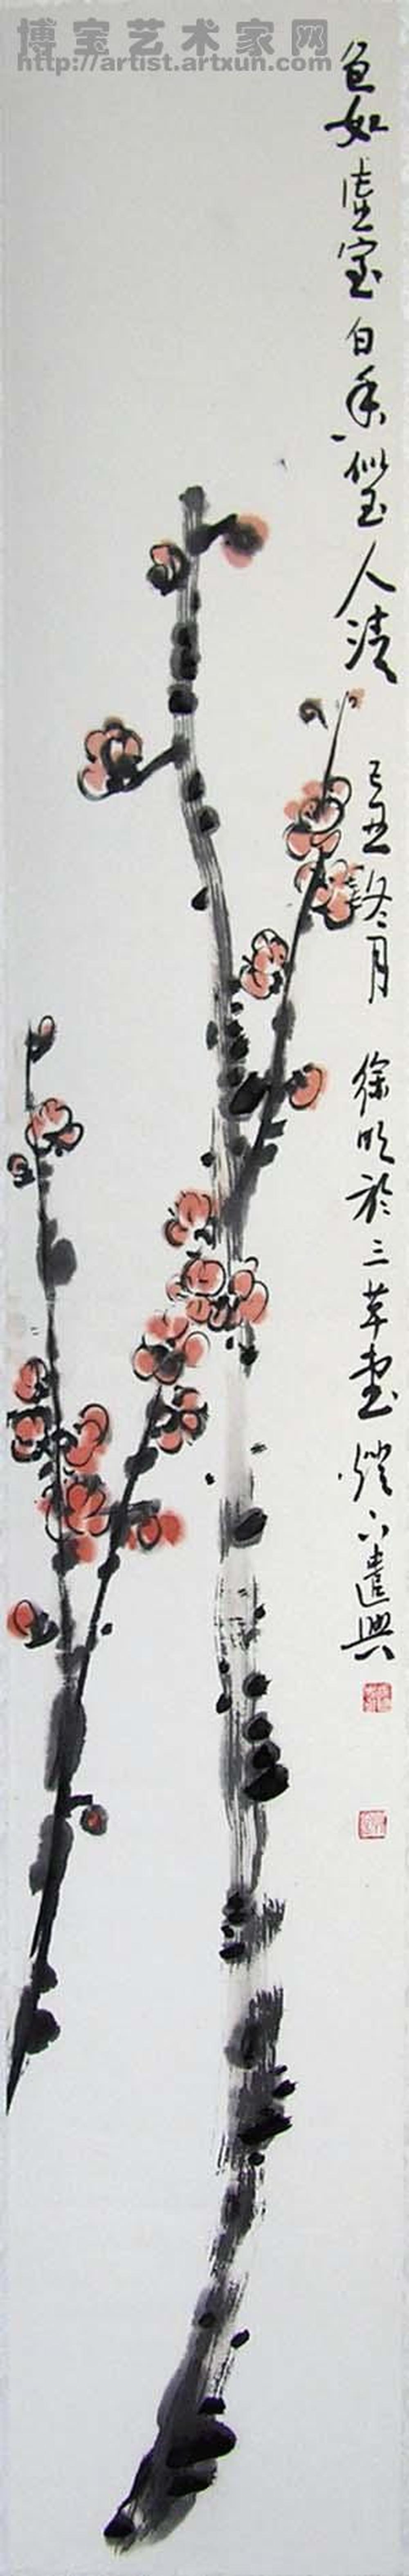 博宝艺术家网
http://artist.artxun.com
色如虚室白香似玉人清 己丑冬月 徐明於三草堂灯下遣兴